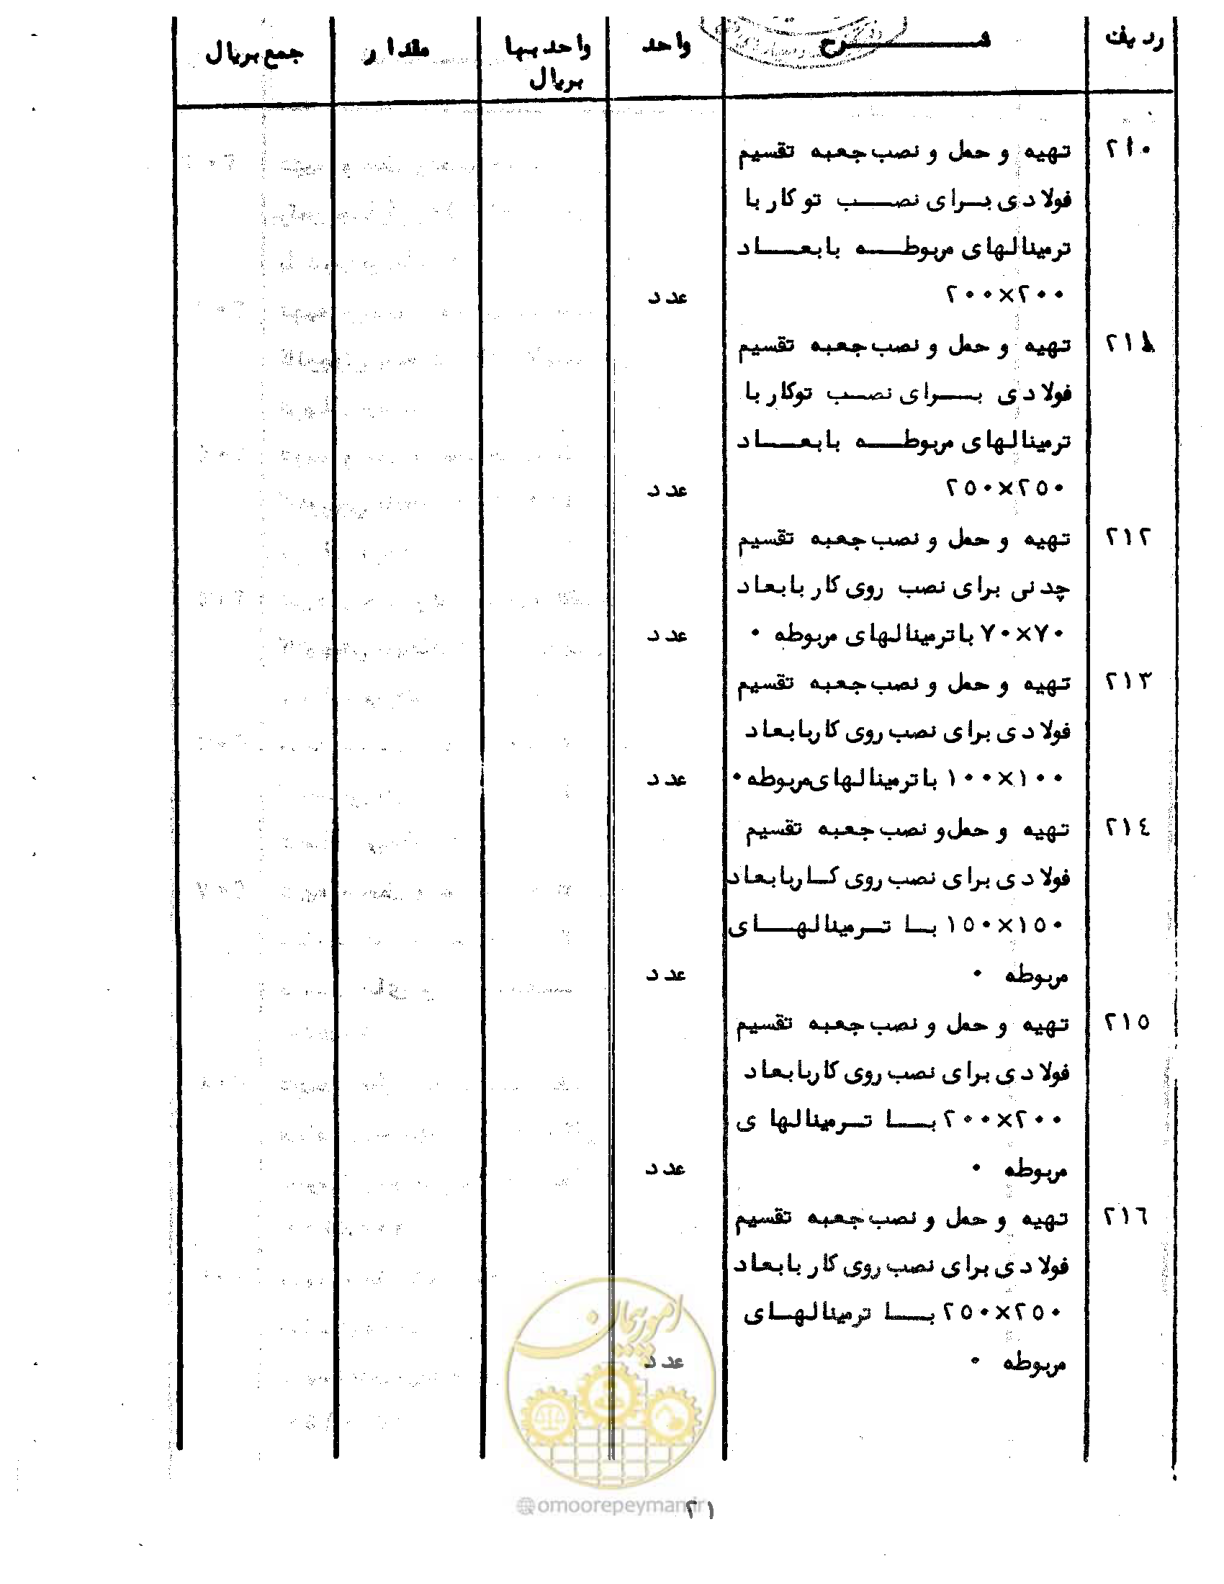 ردیف شرح واحد واحد بها مقدار جمع بریال
بریال
۲۱۰ تهیه و حمل و نصب جعبه تقسیم
فولادی برای نصب توکار با
ترمینالهای مربوطه بابعاد
۲۰۰×۲۰۰ عدد
۲۱۱ تهیه و حمل و نصب جعبه تقسیم
فولادی برای نصب توکار با
ترمینالهای مربوطه بابعاد
۲۵۰×۲۵۰ عدد
۲۱۲ تهیه و حمل و نصب جعبه تقسیم
چدنی برای نصب روی کار بابعاد
۷۰×۷۰ با ترمینالهای مربوطه ۰ عدد
۲۱۳ تهیه و حمل و نصب جعبه تقسیم
فولادی برای نصب روی کار بابعاد
۱۰۰×۱۰۰ با ترمینالهای مربوطه ۰ عدد
۲۱٤ تهیه و حمل و نصب جعبه تقسیم
فولادی برای نصب روی کار بابعاد
۱۵۰×۱۵۰ با ترمینالهای
مربوطه ۰ عدد
۲۱۵ تهیه و حمل و نصب جعبه تقسیم
فولادی برای نصب روی کار بابعاد
۲۰۰×۲۰۰ با ترمینالهای
مربوطه ۰ عدد
۲۱٦ تهیه و حمل و نصب جعبه تقسیم
فولادی برای نصب روی کار بابعاد
۲۵۰×۲۵۰ با ترمینالهای
مربوطه ۰ عدد
امور پیمان
@omoorepeyman.ir
۲۱